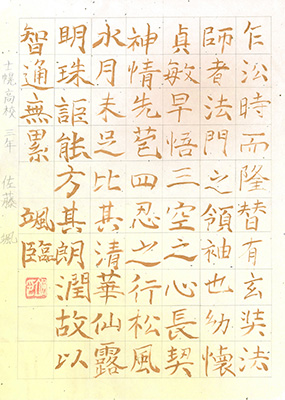 乍沿時而隆替有玄奘法
師者法門之領袖也幼懷
貞敏早悟三空之心長契
神情先苞四忍之行松風
水月未足比其清華仙露
明珠詎能方其朗潤故以
智通無累 颯臨
士幌高校 三年 佐藤 颯